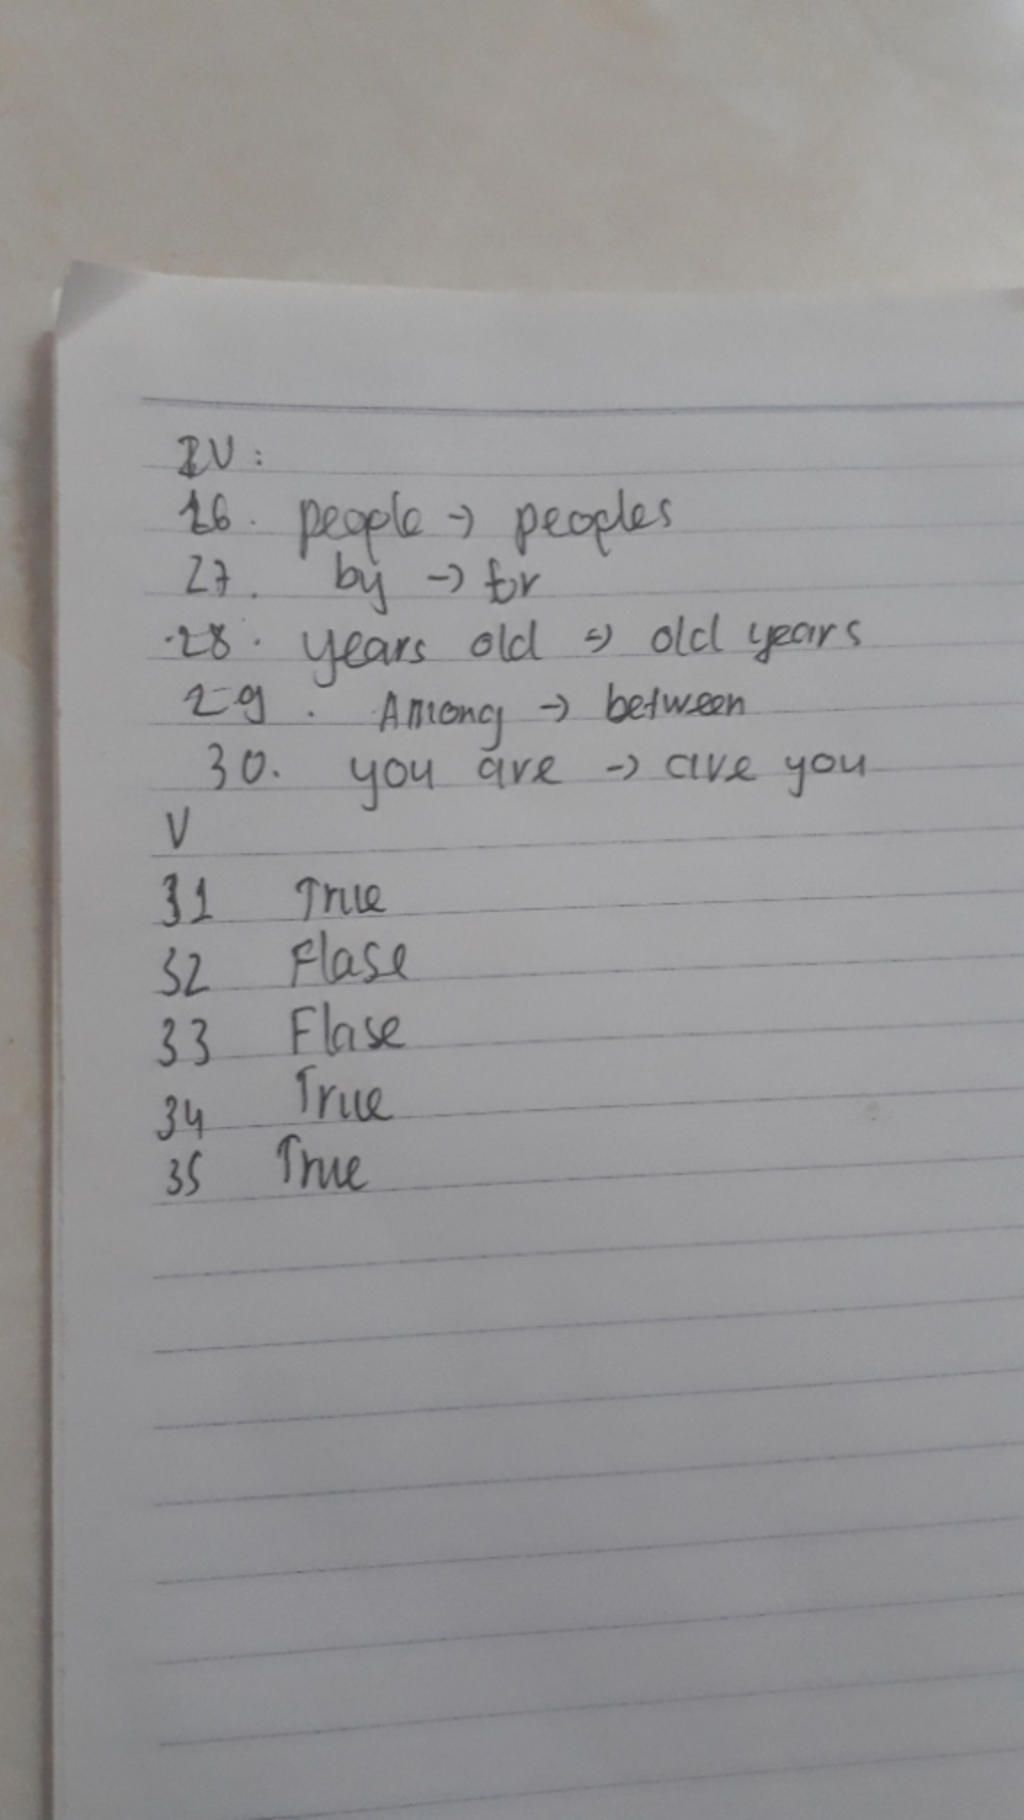 IV:
26. people → peoples
27. by → for
28. years old → old years
29. Among → between
30. you are → are you
V
31 True
32 Flase
33 Flase
34 True
35 True